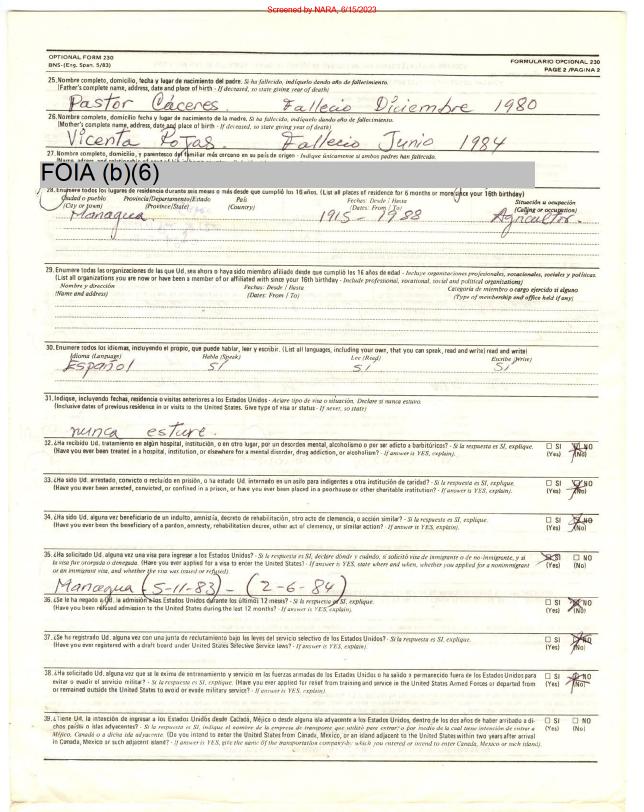 Screened by NARA, 6/15/2023
OPTIONAL FORM 230
BNS-(Eng. Span. 5/83)
FORMULARIO OPCIONAL 230
PAGE 2 /PAGINA 2
25. Nombre completo, domicilio, fecha y lugar de nacimiento del padre. Si ha fallecido, indíquelo dando año de fallecimiento.
(Father's complete name, address, date and place of birth - If deceased, so state giving year of death)
Pastor Cáceres. Fallecio Diciembre 1980
26. Nombre completo, domicilio fecha y lugar de nacimiento de la madre. Si ha fallecido, indíquelo dando año de fallecimiento.
(Mother's complete name, address, date and place of birth - If deceased, so state giving year of death)
Vicenta Rojas. Fallecio Junio 1984
27. Nombre completo, domicilio, y parentesco del familiar más cercano en su país de origen - Indique únicamente si ambos padres han fallecido.
FOIA (b)(6)
28. Enumere todos los lugares de residencia durante seis meses o más desde que cumplió los 16 años. (List all places of residence for 6 months or more since your 16th birthday)
Ciudad o pueblo Provincia/Departamento/Estado País Fechas: Desde / Hasta Situación u ocupación
(City or town) (Province/State) (Country) (Dates: From / To) (Calling or occupation)
Managua. 1915 - 1988 Agricultor.
29. Enumere todas las organizaciones de las que Ud. sea ahora o haya sido miembro afiliado desde que cumplió los 16 años de edad - Incluye organizaciones profesionales, vocacionales, sociales y políticas.
(List all organizations you are now or have been a member of or affiliated with since your 16th birthday - Include professional, vocational, social and political organizations)
Nombre y dirección Fechas: Desde / Hasta Categoría de miembro o cargo ejercido si alguno
(Name and address) (Dates: From / To) (Type of membership and office held if any)
30. Enumere todos los idiomas, incluyendo el propio, que puede hablar, leer y escribir. (List all languages, including your own, that you can speak, read and write) read and write)
Idioma (Language) Habla (Speak) Lee (Read) Escribe (Write)
Español Si Si Si
31. Indique, incluyendo fechas, residencia o visitas anteriores a los Estados Unidos - Aclare tipo de visa o situación. Declare si nunca estuvo.
(Inclusive dates of previous residence in or visits to the United States. Give type of visa or status - If never, so state)
nunca estuve.
32. ¿Ha recibido Ud. tratamiento en algún hospital, institución, o en otro lugar, por un desorden mental, alcoholismo o por ser adicto a barbitúricos? - Si la respuesta es SI, explique. SI NO
(Have you ever been treated in a hospital, institution, or elsewhere for a mental disorder, drug addiction, or alcoholism? - If answer is YES, explain). (Yes) (No)
33. ¿Ha sido Ud. arrestado, convicto o recluido en prisión, o ha estado Ud. internado en un asilo para indigentes u otra institución de caridad? - Si la respuesta es SI, explique. SI NO
(Have you ever been arrested, convicted, or confined in a prison, or have you ever been placed in a poorhouse or other charitable institution? - If answer is YES, explain). (Yes) (No)
34. ¿Ha sido Ud. alguna vez beneficiario de un indulto, amnistía, decreto de rehabilitación, otro acto de clemencia, o acción similar? - Si la respuesta es SI, explique. SI NO
(Have you ever been the beneficiary of a pardon, amnesty, rehabilitation decree, other act of clemency, or similar action? - If answer is YES, explain). (Yes) (No)
35. ¿Ha solicitado Ud. alguna vez una visa para ingresar a los Estados Unidos? - Si la respuesta es SI, declare dónde y cuándo, si solicitó visa de inmigrante o de no-inmigrante, y si SI NO
la visa fue otorgada o denegada. (Have you ever applied for a visa to enter the United States? - If answer is YES, state where and when, whether you applied for a nonimmigrant (Yes) (No)
or an immigrant visa, and whether the visa was issued or refused).
Managua (5-11-83) - (2-6-84)
36. ¿Se le ha negado a Ud. la admisión a los Estados Unidos durante los últimos 12 meses? - Si la respuesta es SI, explique. SI NO
(Have you been refused admission to the United States during the last 12 months? - If answer is YES, explain). (Yes) (No)
37. ¿Se ha registrado Ud. alguna vez con una junta de reclutamiento bajo las leyes del servicio selectivo de los Estados Unidos? - Si la respuesta es SI, explique. SI NO
(Have you ever registered with a draft board under United States Selective Service laws? - If answer is YES, explain). (Yes) (No)
38. ¿Ha solicitado Ud. alguna vez que se le exima de entrenamiento y servicio en las fuerzas armadas de los Estados Unidos o ha salido o permanecido fuera de los Estados Unidos para SI NO
evitar o evadir el servicio militar? - Si la respuesta es SI, explique. (Have you ever applied for relief from training and service in the United States Armed Forces or departed from (Yes) (No)
or remained outside the United States to avoid or evade military service? - If answer is YES, explain).
39. ¿Tiene Ud. la intención de ingresar a los Estados Unidos desde Canadá, Méjico o desde alguna isla adyacente a los Estados Unidos, dentro de los dos años de haber arribado a di- SI NO
chos países o islas adyacentes? - Si la respuesta es SI, indique el nombre de la empresa de transporte que utilizó para entrar; o por medio de la cual tiene intención de entrar a (Yes) (No)
Méjico, Canadá o a dicha isla adyacente. (Do you intend to enter the United States from Canada, Mexico, or an island adjacent to the United States within two years after arrival
in Canada, Mexico or such adjacent island? - If answer is YES, give the name of the transportation company by which you entered or intend to enter Canada, Mexico or such island).